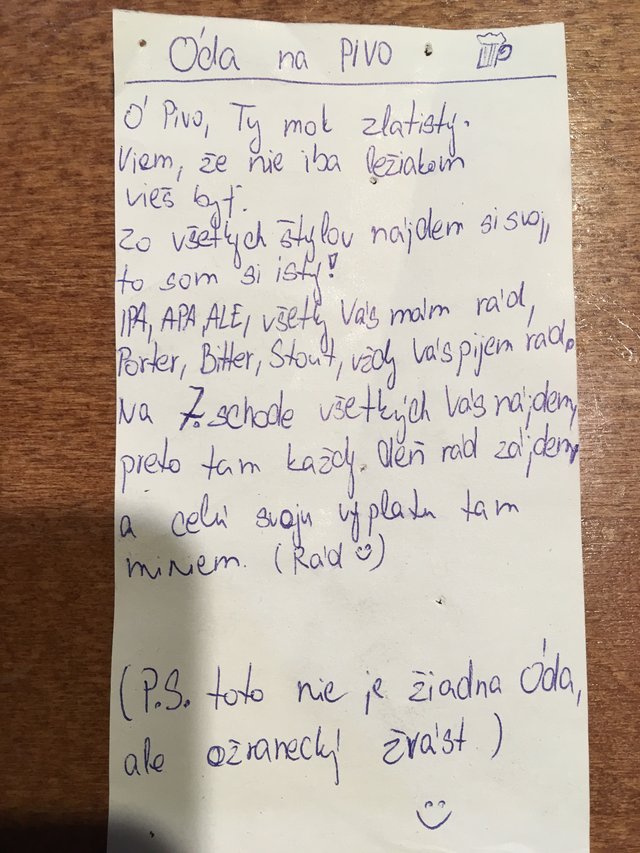 Óda na PIVO
Ó Pivo, Ty mok zlatistý.
Viem, že nie iba ležiakom
vieš byť.
Zo všetkých štýlov nájdem si svoj,
to som si istý!
IPA, APA, ALE, všetky Vás mám rád,
Porter, Bitter, Stout, vždy Vás pijem rád.
Na 7. schode všetkých Vás nájdem,
preto tam každý deň rád zájdem,
a celú svoju výplatu tam
miniem. (Rád ☺)
(P.S. toto nie je žiadna Óda,
ale ožranecký žvást)
☺